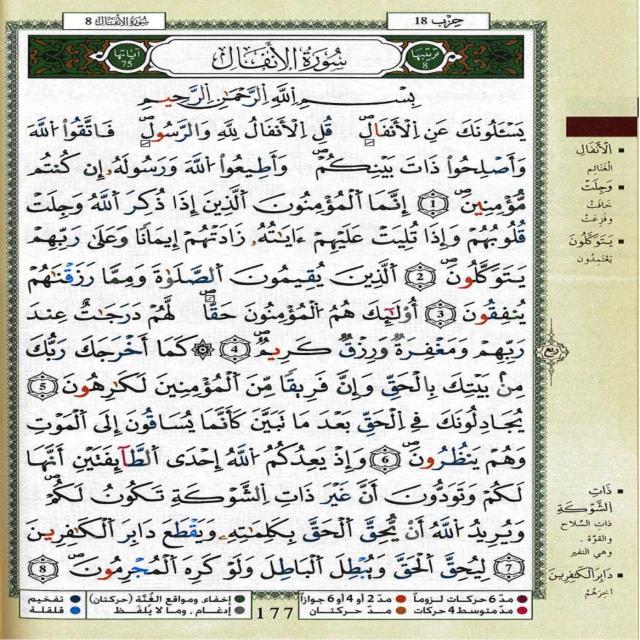 حزب 18
سُورَةُ الأَنفَال 8
ترتيبها 8
سُورَةُ الأَنْفَال
آياتها 75
بِسْمِ اللَّهِ الرَّحْمَٰنِ الرَّحِيمِ
يَسْـَٔلُونَكَ عَنِ الْأَنفَالِ قُلِ الْأَنفَالُ لِلَّهِ وَالرَّسُولِ فَاتَّقُوا اللَّهَ
وَأَصْلِحُوا ذَاتَ بَيْنِكُمْ وَأَطِيعُوا اللَّهَ وَرَسُولَهُ إِن كُنتُم
مُّؤْمِنِينَ 1 إِنَّمَا الْمُؤْمِنُونَ الَّذِينَ إِذَا ذُكِرَ اللَّهُ وَجِلَتْ
قُلُوبُهُمْ وَإِذَا تُلِيَتْ عَلَيْهِمْ ءَايَٰتُهُ زَادَتْهُمْ إِيمَانًا وَعَلَىٰ رَبِّهِمْ
يَتَوَكَّلُونَ 2 الَّذِينَ يُقِيمُونَ الصَّلَوٰةَ وَمِمَّا رَزَقْنَٰهُمْ
يُنفِقُونَ 3 أُو۟لَٰٓئِكَ هُمُ الْمُؤْمِنُونَ حَقًّا لَّهُمْ دَرَجَٰتٌ عِندَ
رَبِّهِمْ وَمَغْفِرَةٌ وَرِزْقٌ كَرِيمٌ 4 ۞ كَمَا أَخْرَجَكَ رَبُّكَ
مِنۢ بَيْتِكَ بِالْحَقِّ وَإِنَّ فَرِيقًا مِّنَ الْمُؤْمِنِينَ لَكَٰرِهُونَ 5
يُجَٰدِلُونَكَ فِي الْحَقِّ بَعْدَ مَا تَبَيَّنَ كَأَنَّمَا يُسَاقُونَ إِلَى الْمَوْتِ
وَهُمْ يَنظُرُونَ 6 وَإِذْ يَعِدُكُمُ اللَّهُ إِحْدَى الطَّآئِفَتَيْنِ أَنَّهَا
لَكُمْ وَتَوَدُّونَ أَنَّ غَيْرَ ذَاتِ الشَّوْكَةِ تَكُونُ لَكُمْ
وَيُرِيدُ اللَّهُ أَنْ يُحِقَّ الْحَقَّ بِكَلِمَٰتِهِ وَيَقْطَعَ دَابِرَ الْكَٰفِرِينَ
7 لِيُحِقَّ الْحَقَّ وَيُبْطِلَ الْبَاطِلَ وَلَوْ كَرِهَ الْمُجْرِمُونَ 8
الْأَنْفَالِ
الْغَنَائِمِ
وَجِلَتْ
خَافَتْ
وَفَزِعَتْ
يَتَوَكَّلُونَ
يَعْتَمِدُونَ
ربع
ذَاتِ
الشَّوْكَةِ
ذات السِّلاح
والقوّة ،
وهي النفير
دَابِرَ الْكَافِرِينَ
آخِرَهُمْ
مدّ 6 حركات لزوماً
مدّ 2 أو 4 أو 6 جوازاً
إخفاء، ومواقع الغُنَّة (حركتان)
تفخيم
مدّ متوسط 4 حركات
مدّ حركتان
إدغام ، وما لا يُلفَظ
قلقلة
177